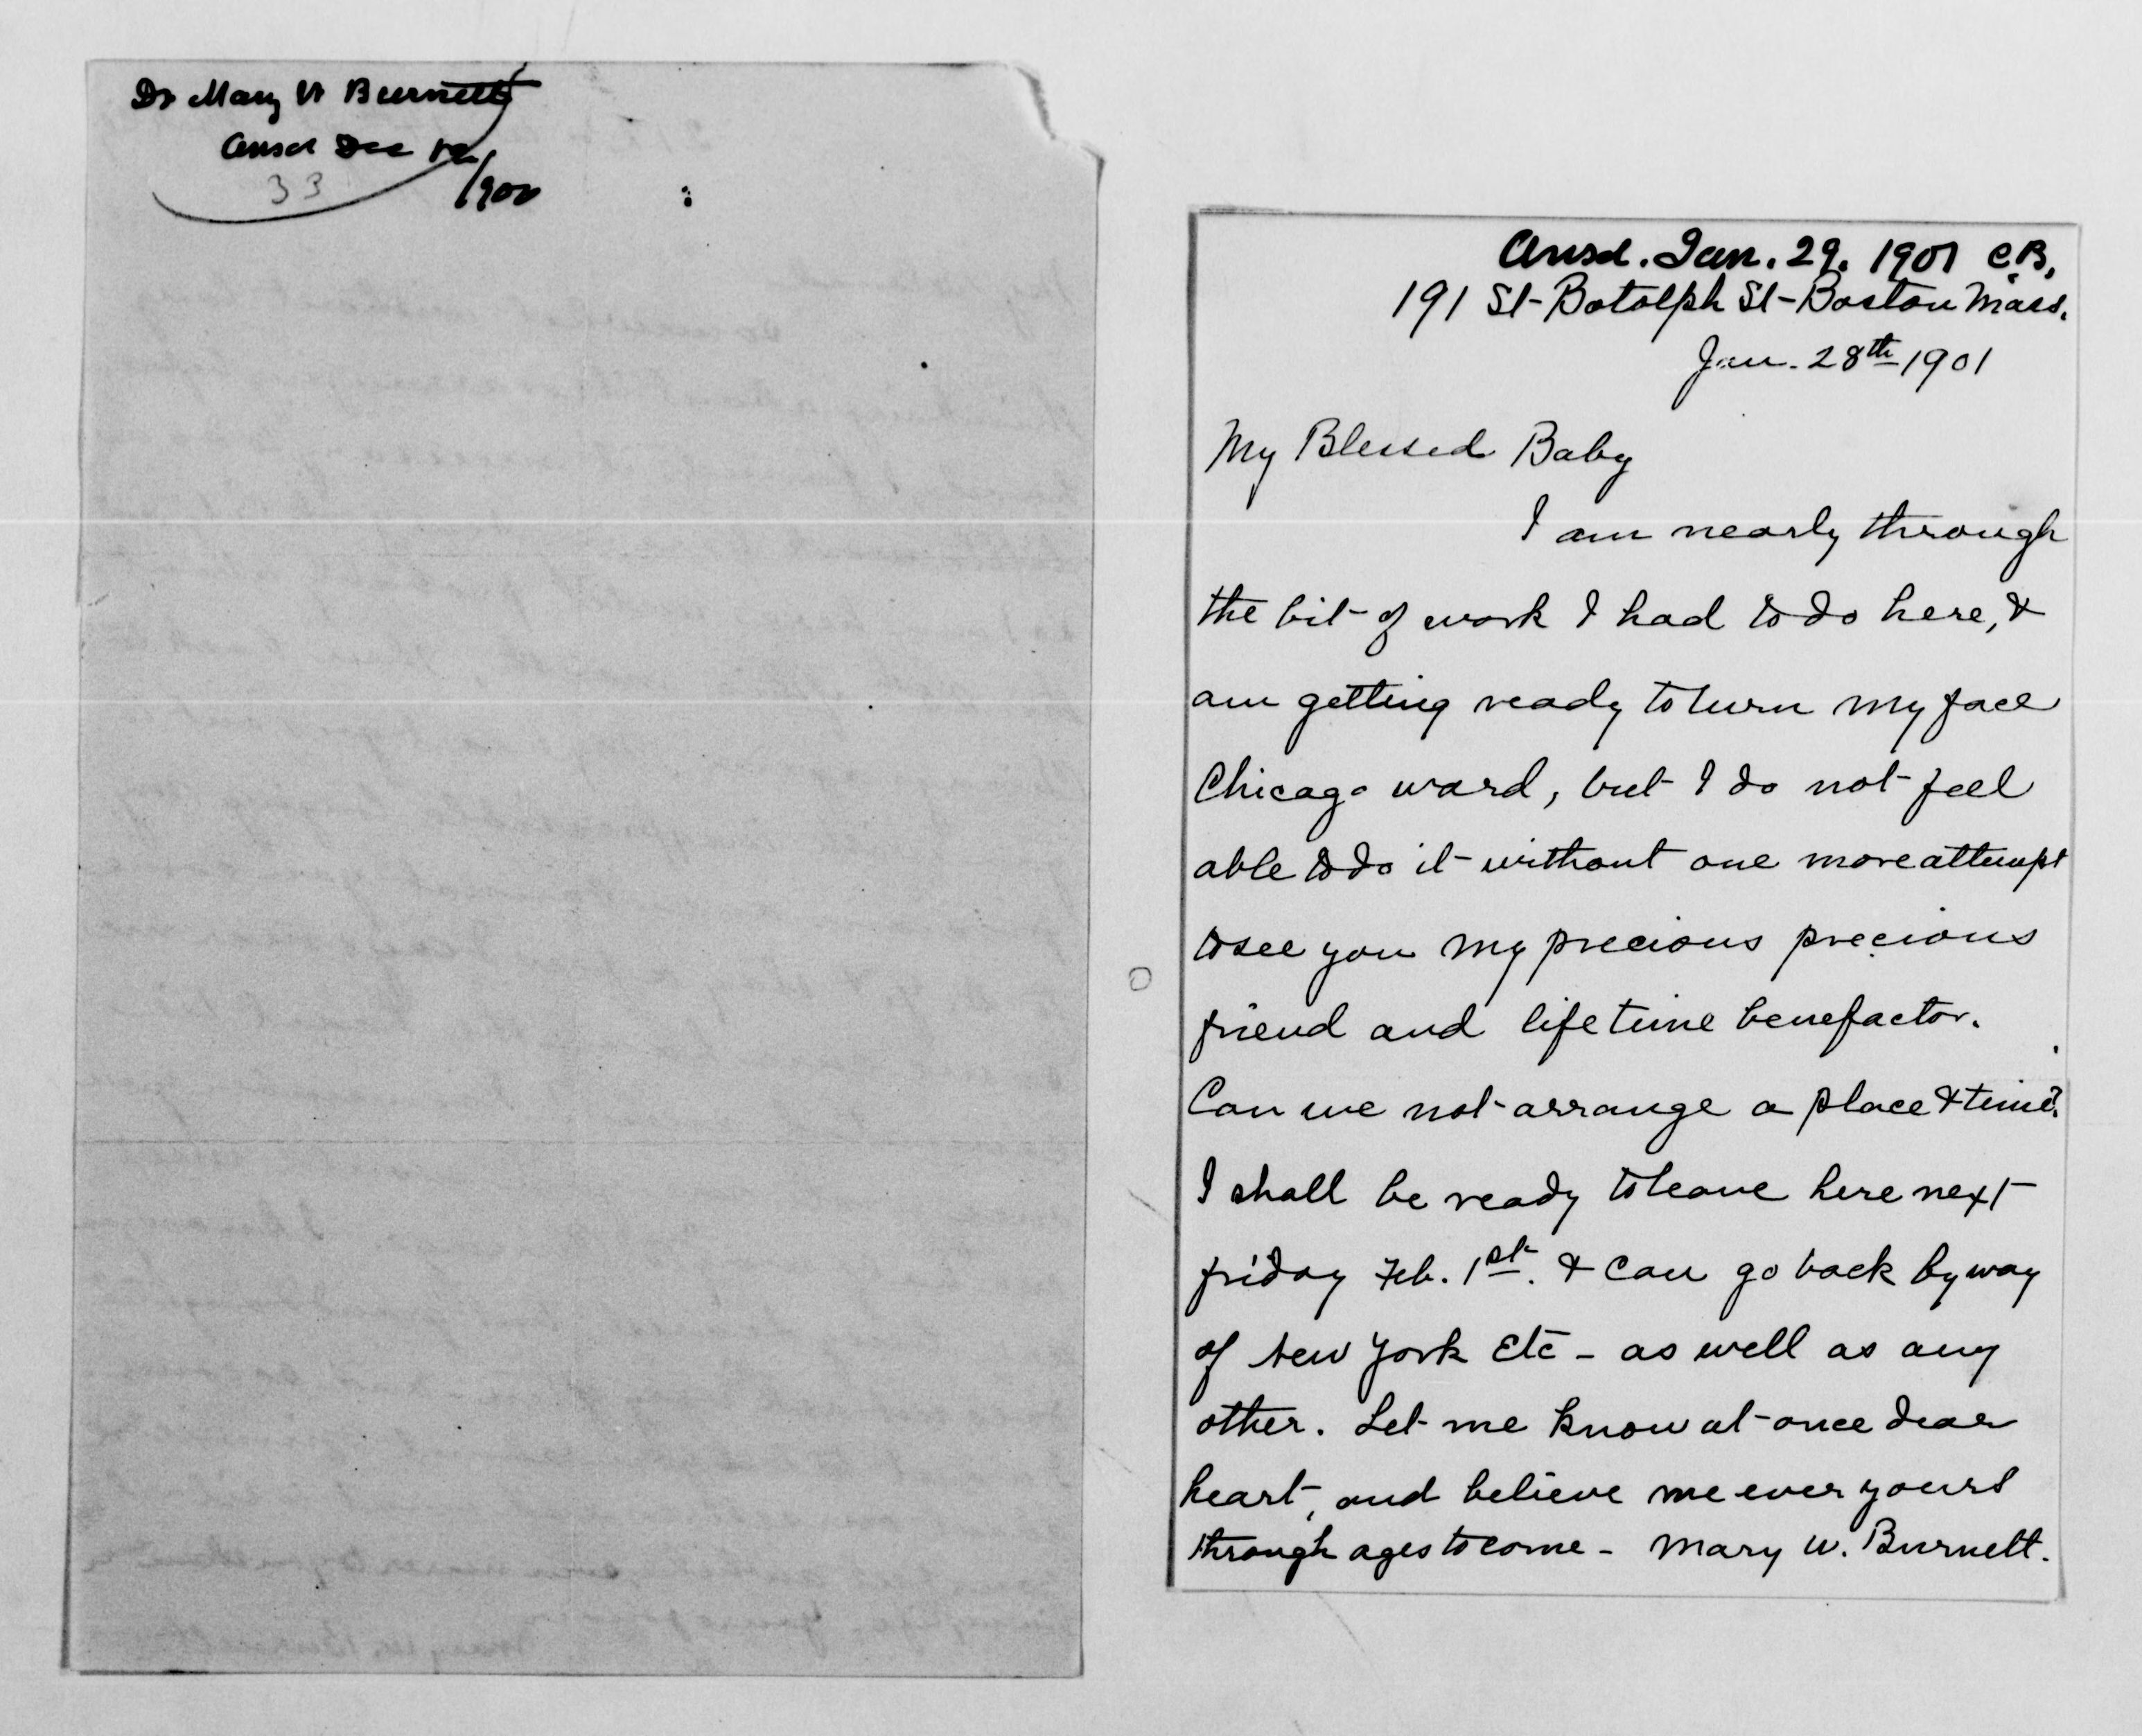 Dr Mary W Burnett
Ansd Dec 12
/900
33
Ansd. Jan. 29. 1901 C.B.
191 St-Botolph St-Boston Mass.
Jan. 28th 1901
My Blessed Baby
I am nearly through
the bit of work I had to do here, &
am getting ready to turn my face
Chicago ward, but I do not feel
able to do it without one more attempt
to see you my precious precious
friend and life time benefactor.
Can we not arrange a place & time?
I shall be ready to leave here next
friday Feb. 1st. & can go back by way
of New York Etc - as well as any
other. Let me know at once dear
heart, and believe me ever yours
through ages to come - Mary W. Burnett.